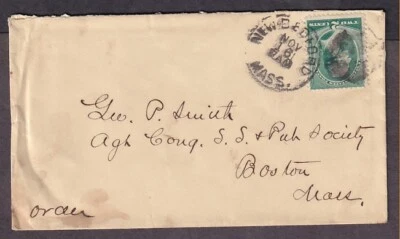 NEW BEDFORD
NOV
MASS.
Geo. P. Smith
Agt Cong. S. S. & Pub Society
Boston
Mass.
order